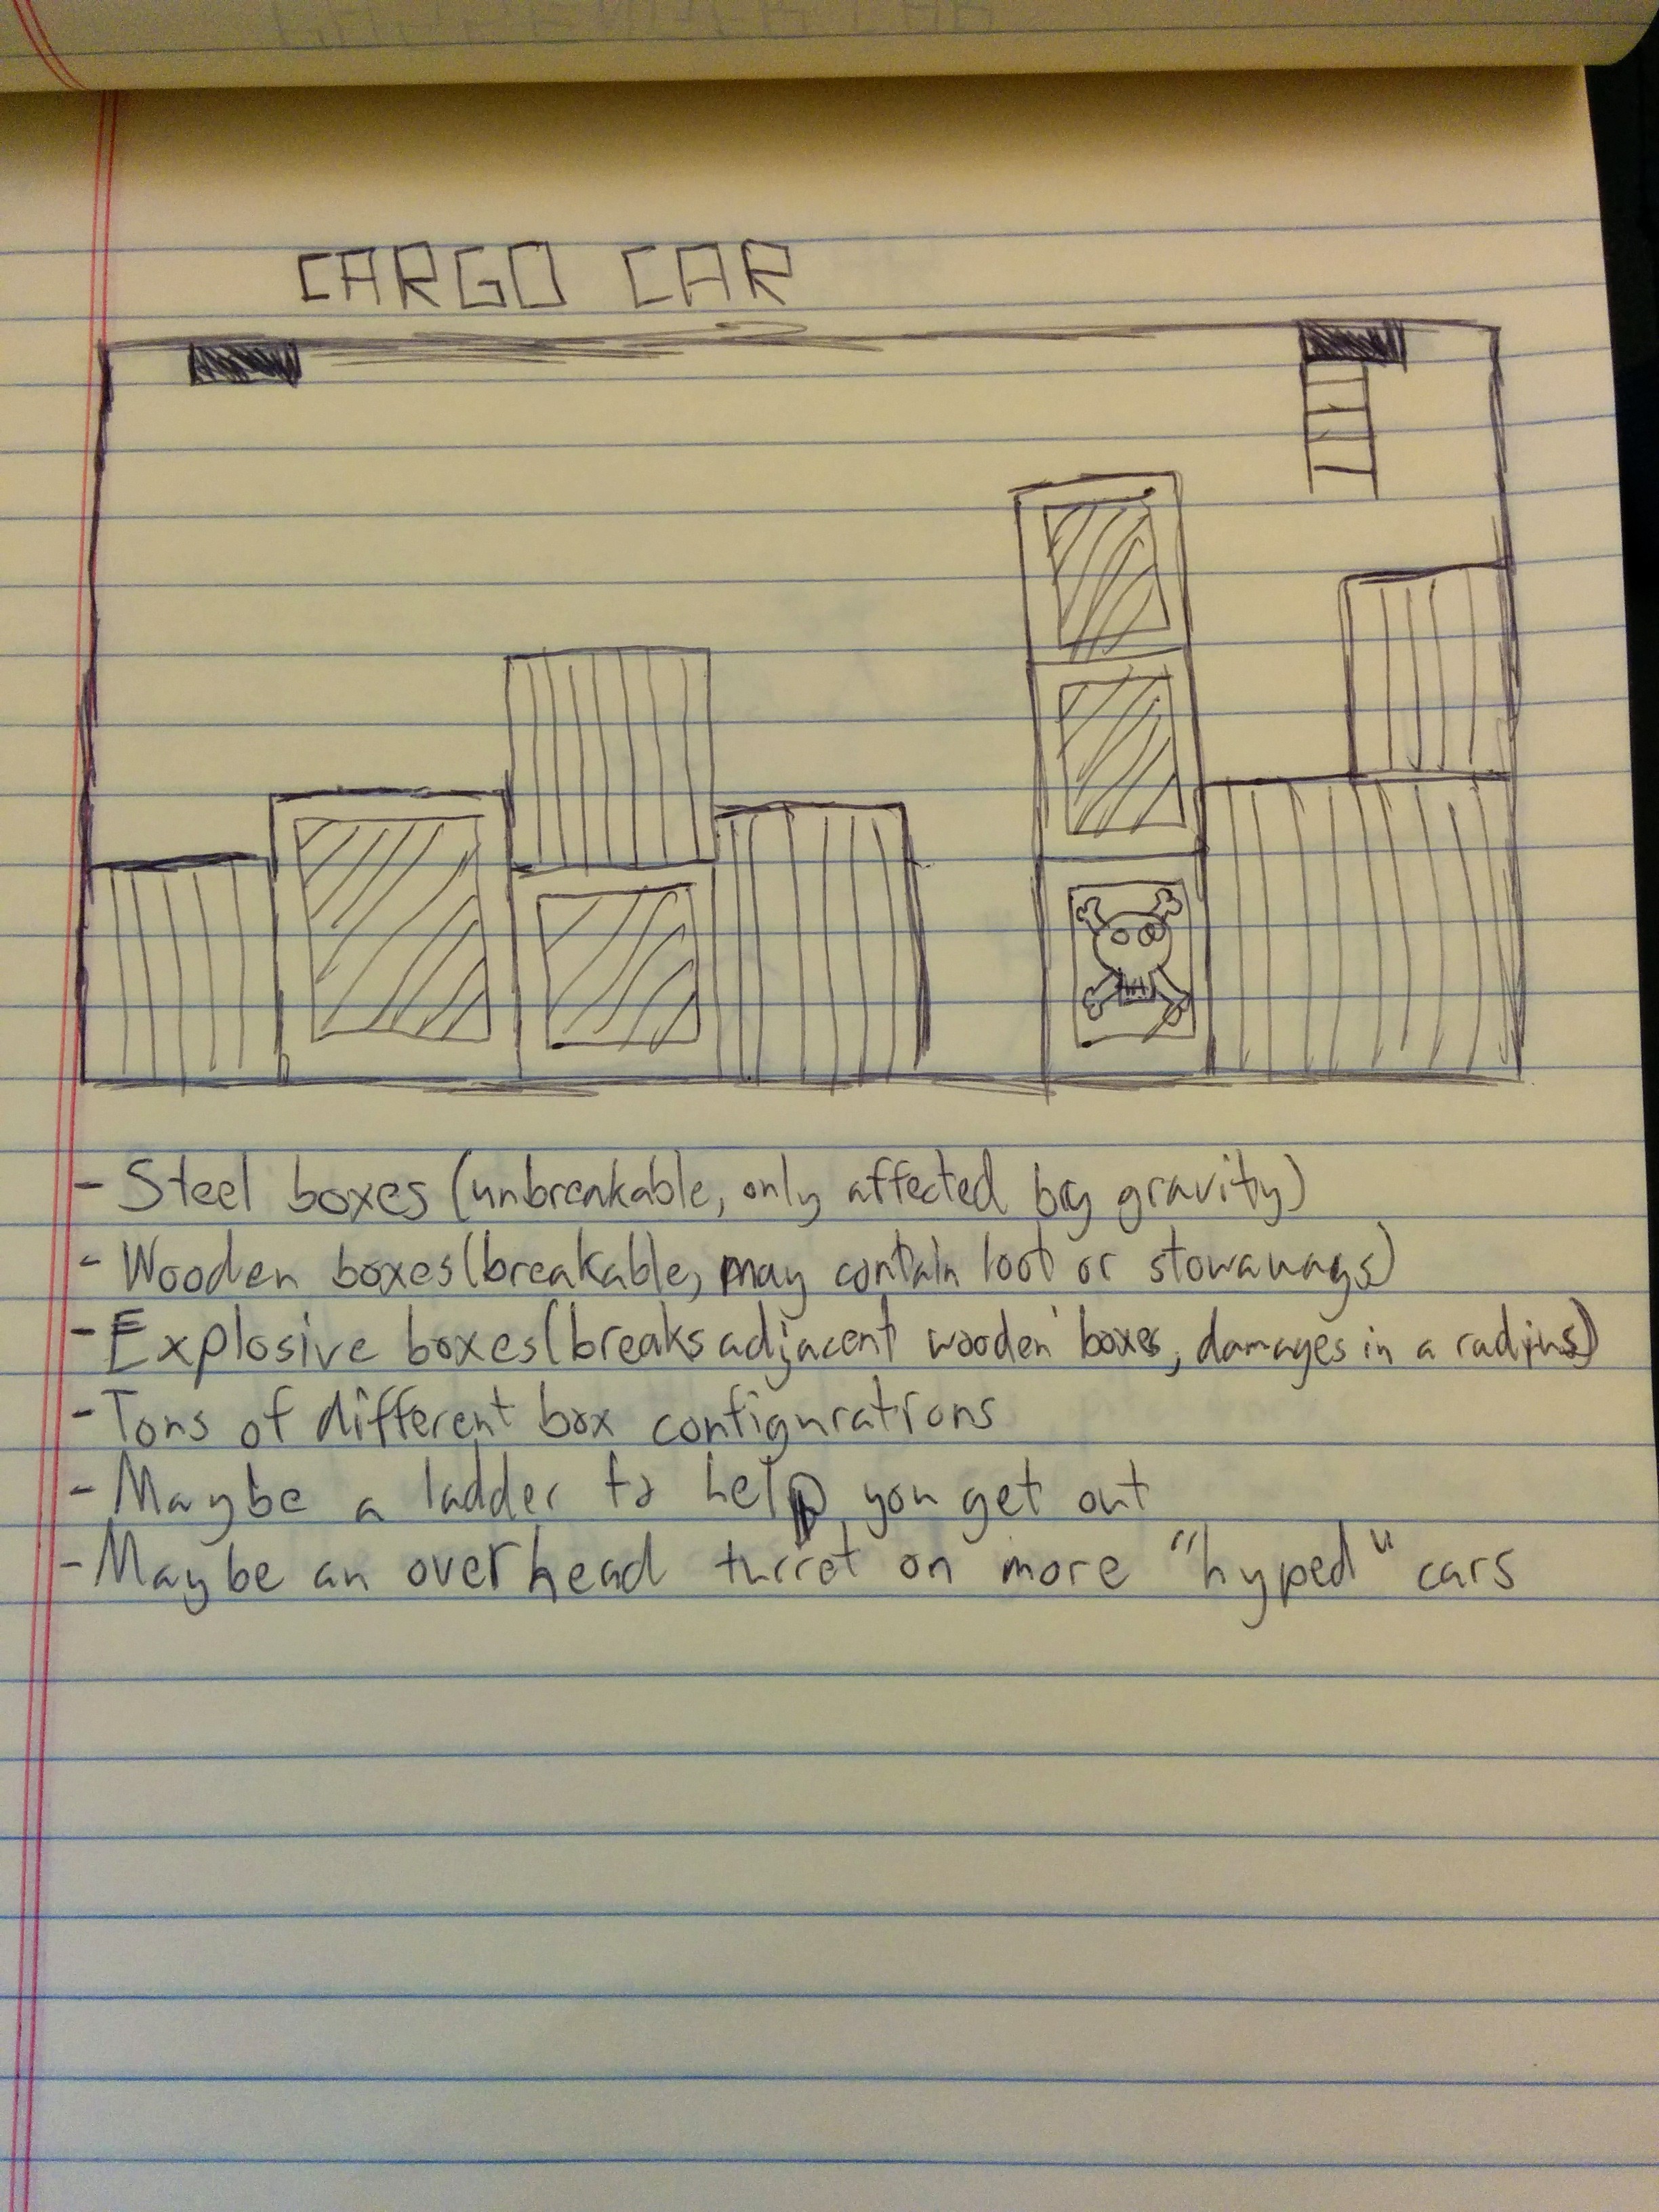 CARGO CAR
- Steel boxes (unbreakable, only affected by gravity)
- Wooden boxes (breakable, may contain loot or stowaways)
- Explosive boxes (breaks adjacent wooden boxes, damages in a radius)
- Tons of different box configurations
- Maybe a ladder to help you get out
- Maybe an overhead turret on more "hyped" cars